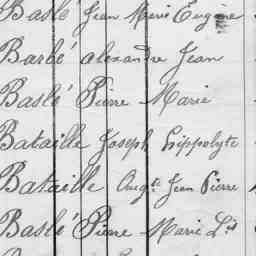 Baslé Jean Marie Eugène
Barbé alexandre Jean
Baslé Pierre Marie
Bataille Joseph hippolyte
Bataille Aug.te Jean Pierre
Baslé Pierre Marie L.is